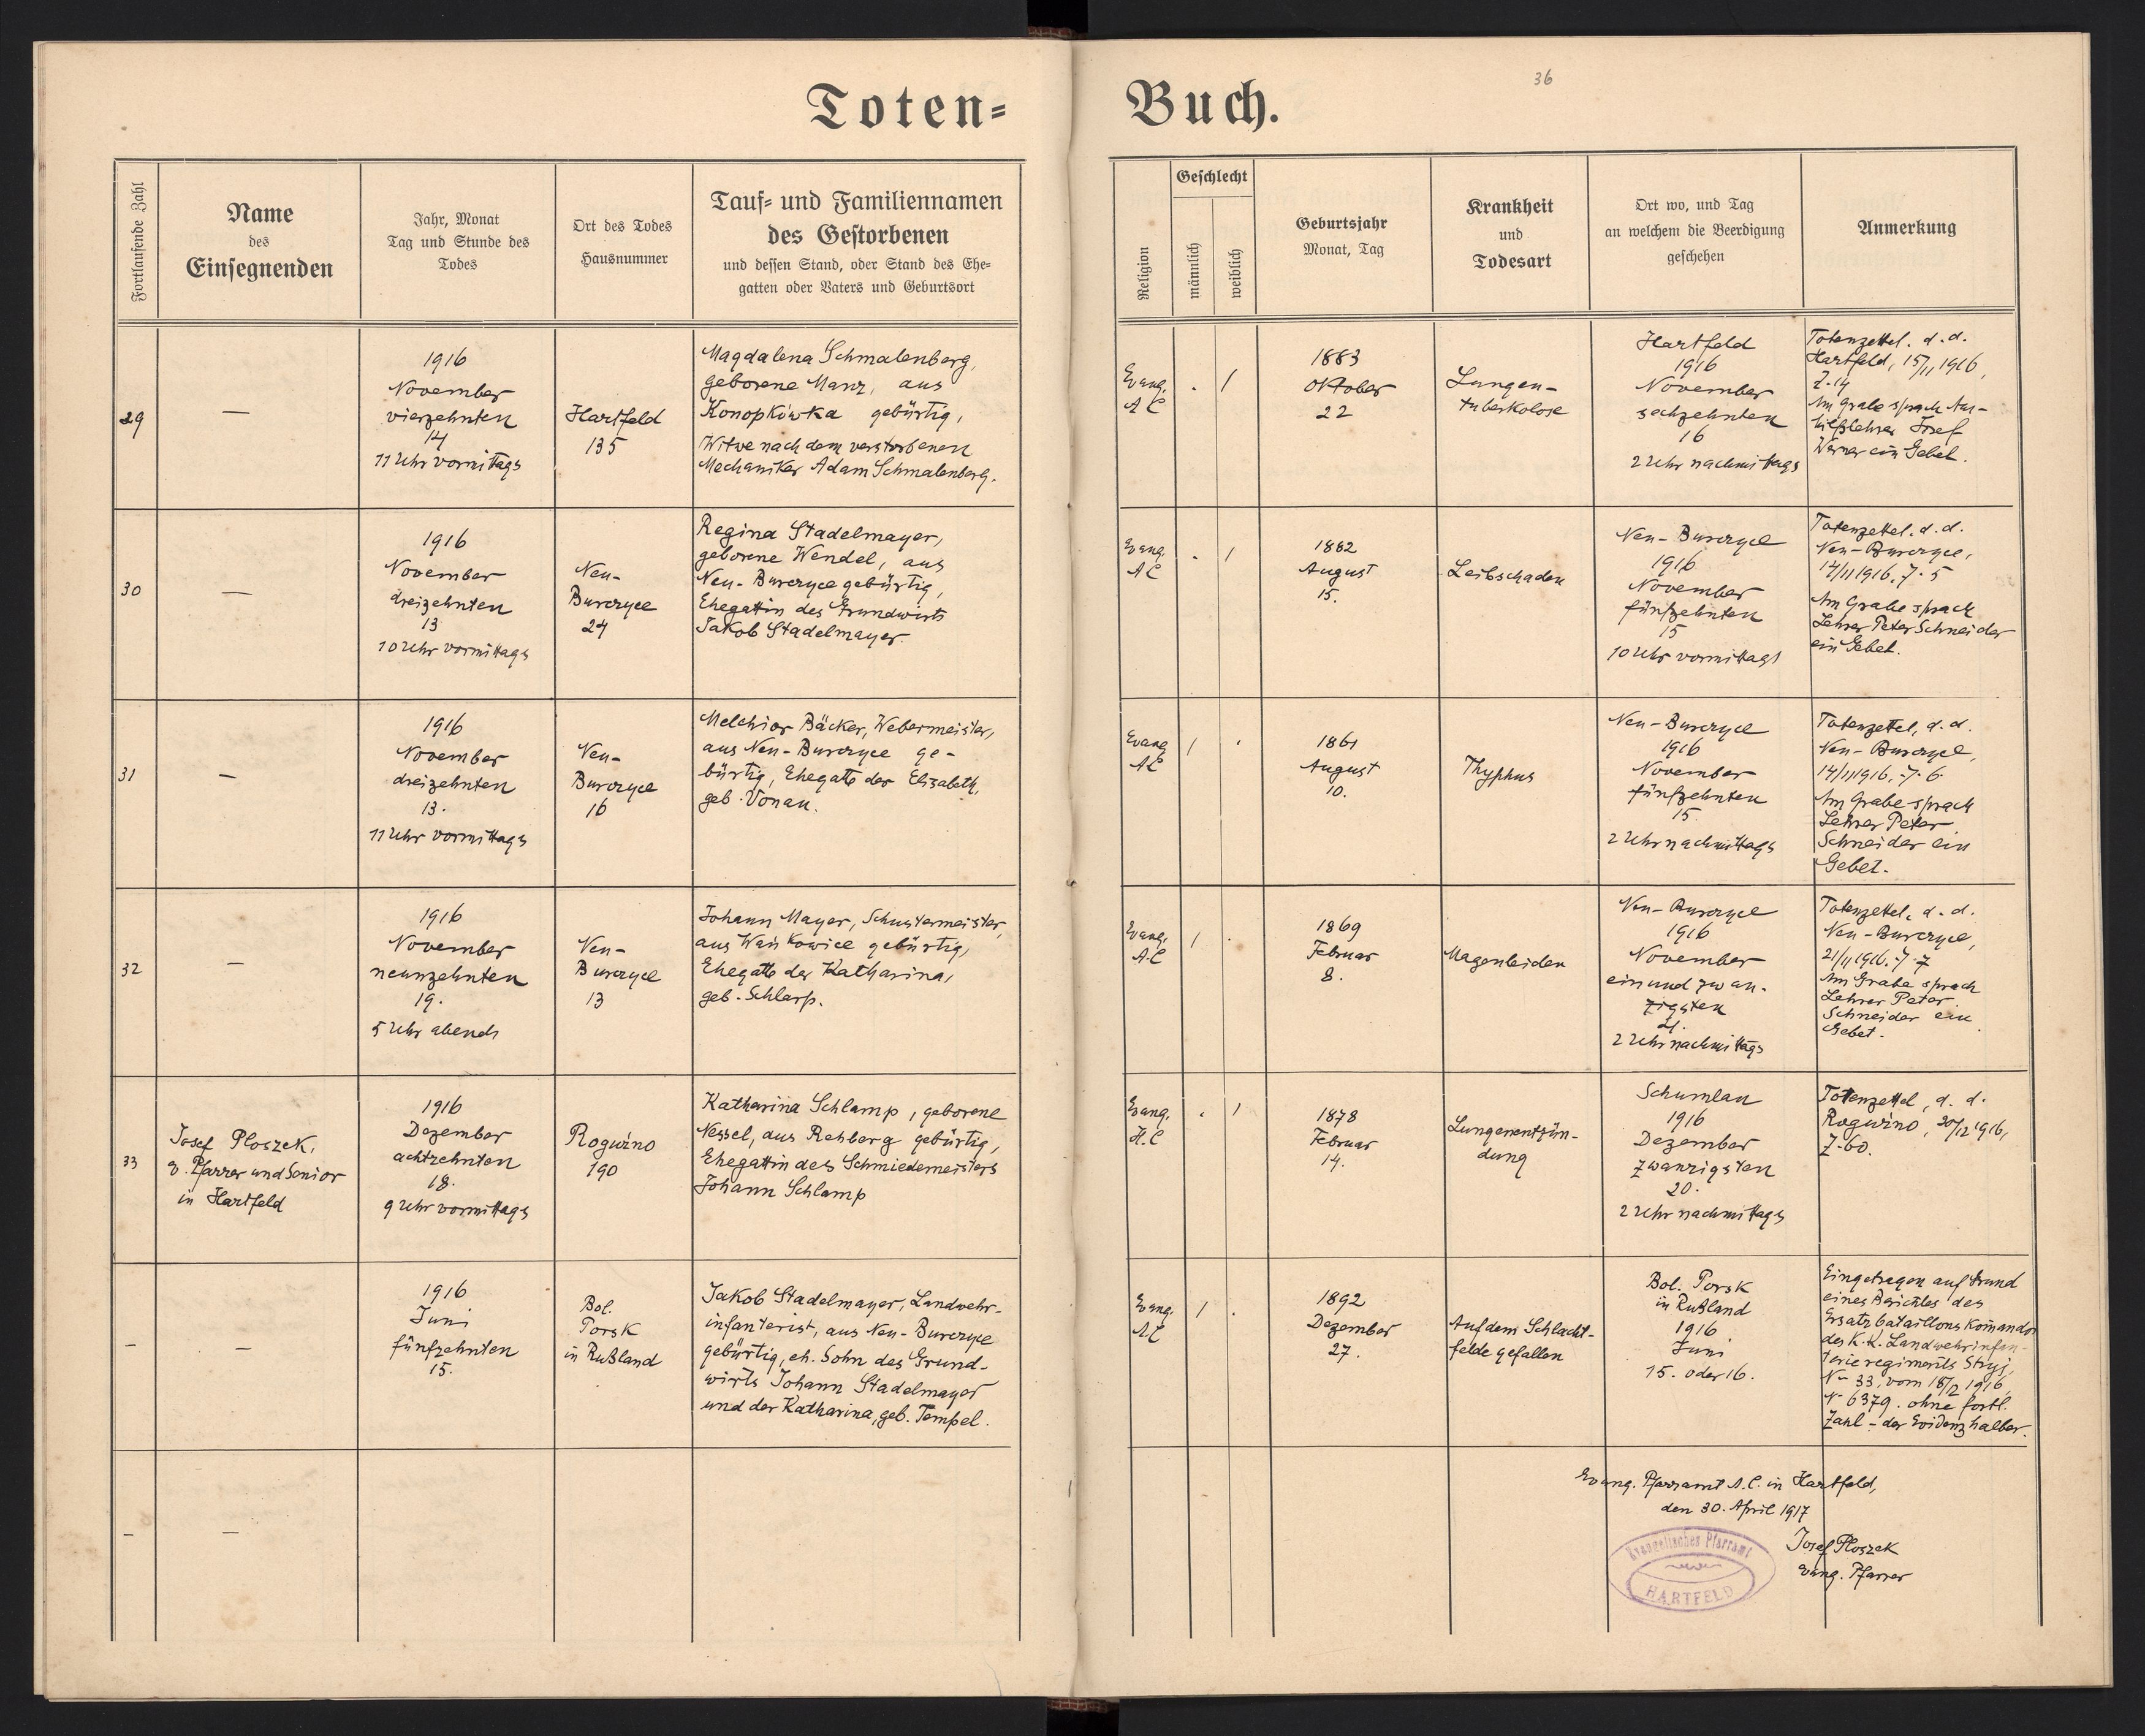 36
Toten=
Buch.
Fortlaufende Zahl
Name
des
Einsegnenden
Jahr, Monat
Tag und Stunde des
Todes
Ort des Todes
Hausnummer
Tauf= und Familiennamen
des Gestorbenen
und dessen Stand, oder Stand des Ehe=
gatten oder Vaters und Geburtsort
Religion
Geschlecht
männlich
weiblich
Geburtsjahr
Monat, Tag
Krankheit
und
Todesart
Ort wo, und Tag
an welchem die Beerdigung
geschehen
Anmerkung
29
—
1916
November
vierzehnten
14
11 Uhr vormittags
Hartfeld
135
Magdalena Schmalenberg,
geborene Manz, aus
Konopkówka gebürtig,
Witwe nach dem verstorbenen
Mechaniker Adam Schmalenberg.
Evang.
A C
. /
1883
Oktober
22
Lungen-
tuberkolose
Hartfeld
1916
November
sechzehnten
16
2 Uhr nachmittags
Totenzettel. d. d.
Hartfeld, 15/11 1916,
Z. 14
Am Grabe sprach Aus-
hilfslehrer Josef
Werner ein Gebet.
30
—
1916
November
dreizehnten
13
10 Uhr vormittags
Neu-
Burczyce
24
Regina Stadelmayer,
geborene Wendel, aus
Neu-Burczyce gebürtig,
Ehegattin des Grundwirts
Jakob Stadelmayer.
Evang.
A C
. /
1882
August
15.
Leibschaden
Neu-Burczyce
1916
November
fünfzehnten
15
10 Uhr vormittags
Totenzettel. d. d.
Neu-Burczyce,
14/11 1916. Z. 5
Am Grabe sprach
Lehrer Peter Schneider
ein Gebet.
31
—
1916
November
dreizehnten
13.
11 Uhr vormittags
Neu-
Burczyce
16
Melchior Bäcker, Webermeister,
aus Neu-Burczyce ge-
bürtig, Ehegatte der Elisabeth,
geb. Vonau.
Evang
A C
/ .
1861
August
10.
Thyphus
Neu-Burczyce
1916
November
fünfzehnten
15.
2 Uhr nachmittags
Totenzettel, d. d.
Neu-Burczyce,
14/11 1916. Z. 6.
Am Grabe sprach
Lehrer Peter
Schneider ein
Gebet.
32
—
1916
November
neunzehnten
19.
5 Uhr abends
Neu-
Burczyce
13
Johann Mayer, Schustermeister,
aus Wańkowice gebürtig,
Ehegatte der Katharina,
geb. Schlarp.
Evang.
A.C
/ .
1869
Februar
8.
Magenleiden
Neu-Burczyce
1916
November
einundzwan-
zigsten
21.
2 Uhr nachmittags
Totenzettel, d. d.
Neu-Burczyce,
21/11 1916. Z. 7
Am Grabe sprach
Lehrer Peter
Schneider ein
Gebet.
33
Josef Ploszek,
ev. Pfarrer und Senior
in Hartfeld
1916
Dezember
achtzehnten
18.
9 Uhr vormittags
Roguźno
190
Katharina Schlamp, geborene
Nessel, aus Rehberg gebürtig,
Ehegattin des Schmiedemeisters
Johann Schlamp
Evang.
H.C
. /
1878
Februar
14.
Lungenentzün-
dung
Schumlau
1916
Dezember
zwanzigsten
20.
2 Uhr nachmittags
Totenzettel, d. d.
Roguźno, 20/12 1916,
Z. 60.
—
—
1916
Juni
fünfzehnten
15.
Bol.
Porsk
in Rußland
Jakob Stadelmayer, Landwehr-
infanterist, aus Neu-Burczyce
gebürtig, eh. Sohn des Grund-
wirts Johann Stadelmayer
und der Katharina, geb. Tempel.
Evang.
A.C
/ .
1892
Dezember
27.
Auf dem Schlacht-
felde gefallen
Bol. Porsk
in Rußland
1916
Juni
15. oder 16.
Eingetragen auf Grund
eines Berichtes des
Ersatzbataillonskomandos
des K.K. Landwehrinfan-
terieregiments Stryj,
No 33, vom 18/12 1916,
No 6379. ohne fortl.
Zahl - der Evidenz halber.
—
—
Evang. Pfarramt A.C. in Hartfeld,
den 30. April 1917
Josef Ploszek
evang. Pfarrer
Evangelisches Pfarramt
HARTFELD